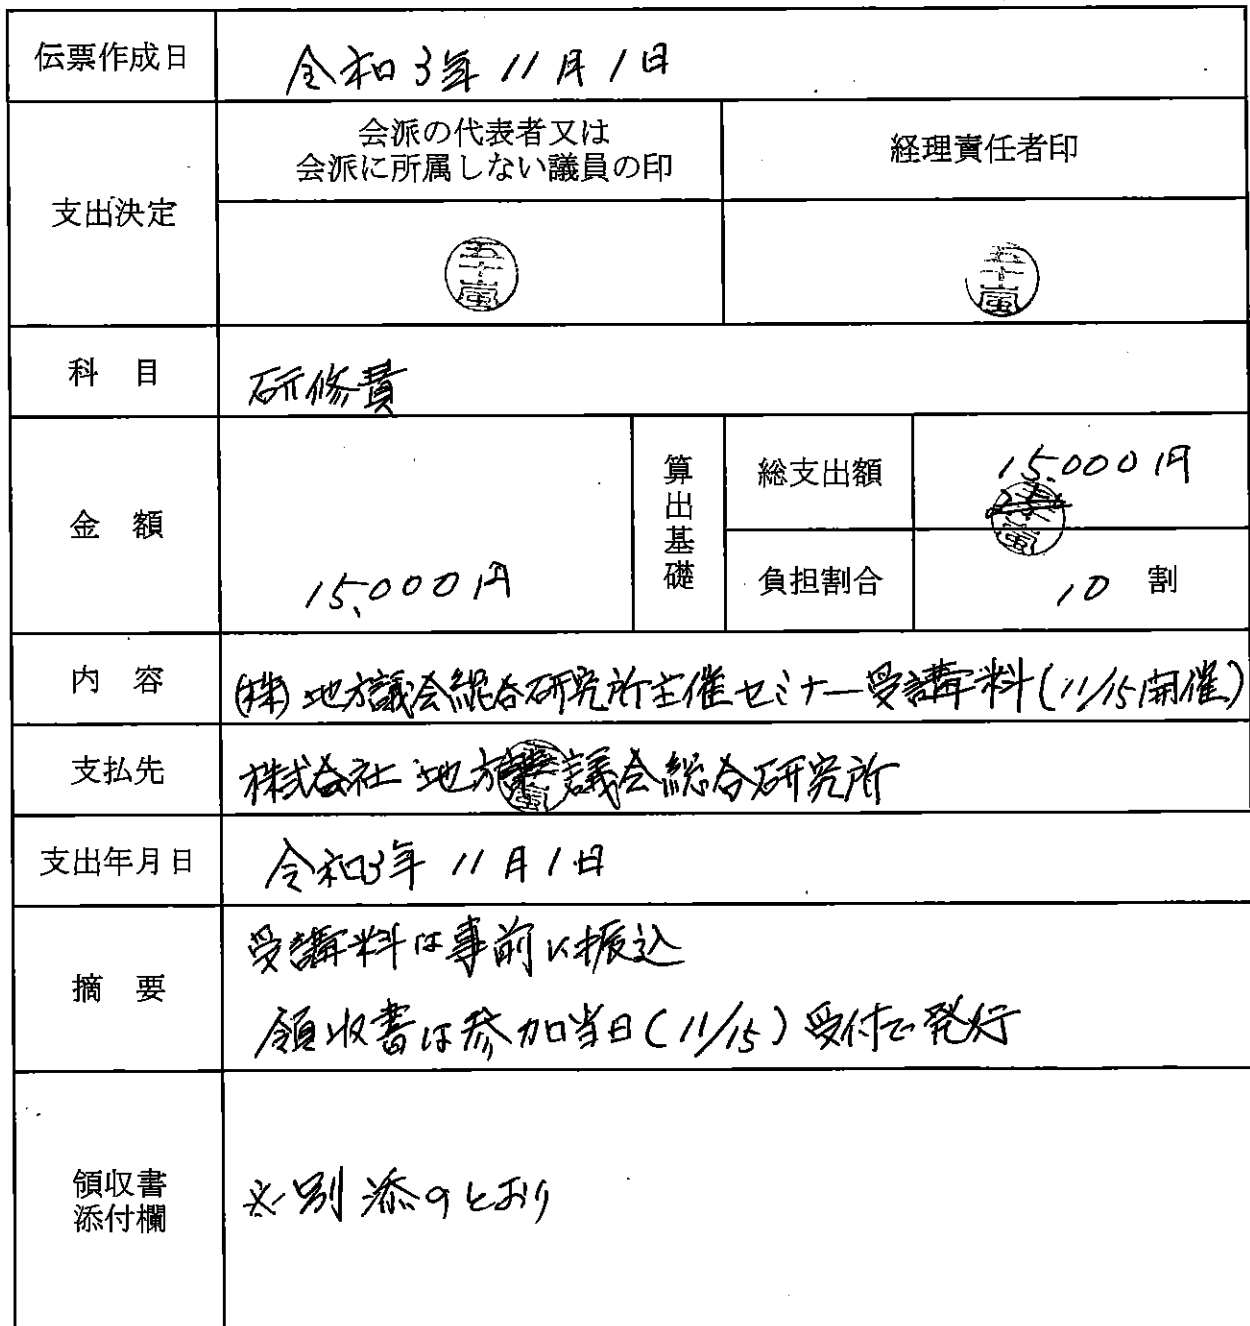 伝票作成日
令和3年11月1日
支出決定
会派の代表者又は
会派に所属しない議員の印
経理責任者印
五十嵐
五十嵐
科 目
研修費
金 額
15,000円
算出基礎
総支出額
15,000円
負担割合
10 割
内 容
(株)地方議会総合研究所主催セミナー受講料(11/15開催)
支払先
株式会社 地方議会総合研究所
支出年月日
令和3年11月1日
摘 要
受講料は事前に振込
領収書は参加当日(11/15)受付で発行
領収書
添付欄
※別添のとおり